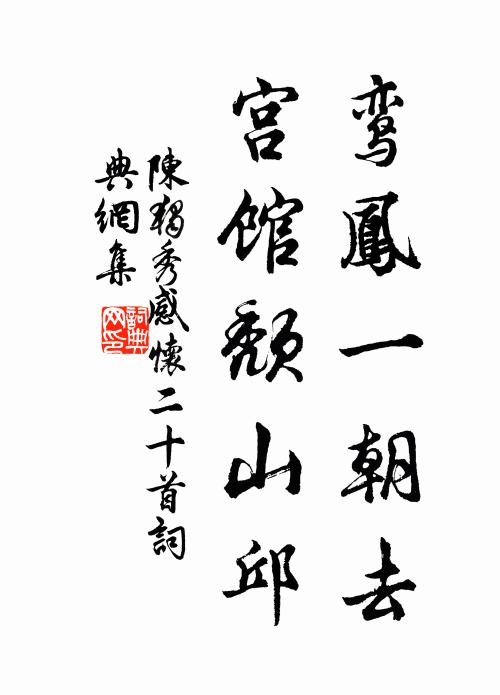 鸾鳳一朝去
宫館頽山邱
陳獨秀感懷二十首詞
典網集
詞典网印